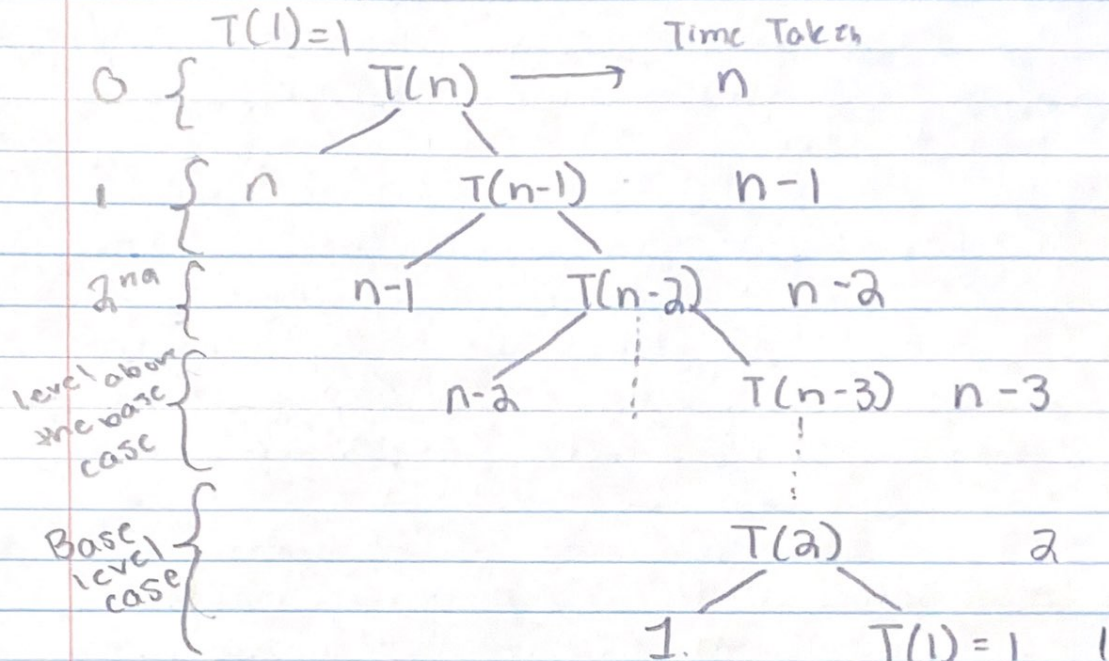 T(1)=1 Time Taken
0 { T(n) → n
1 { n T(n-1) n-1
2nd { n-1 T(n-2) n-2
level above
the base
case { n-2 T(n-3) n-3
Base
level
case { T(2) 2
1. T(1) = 1 1